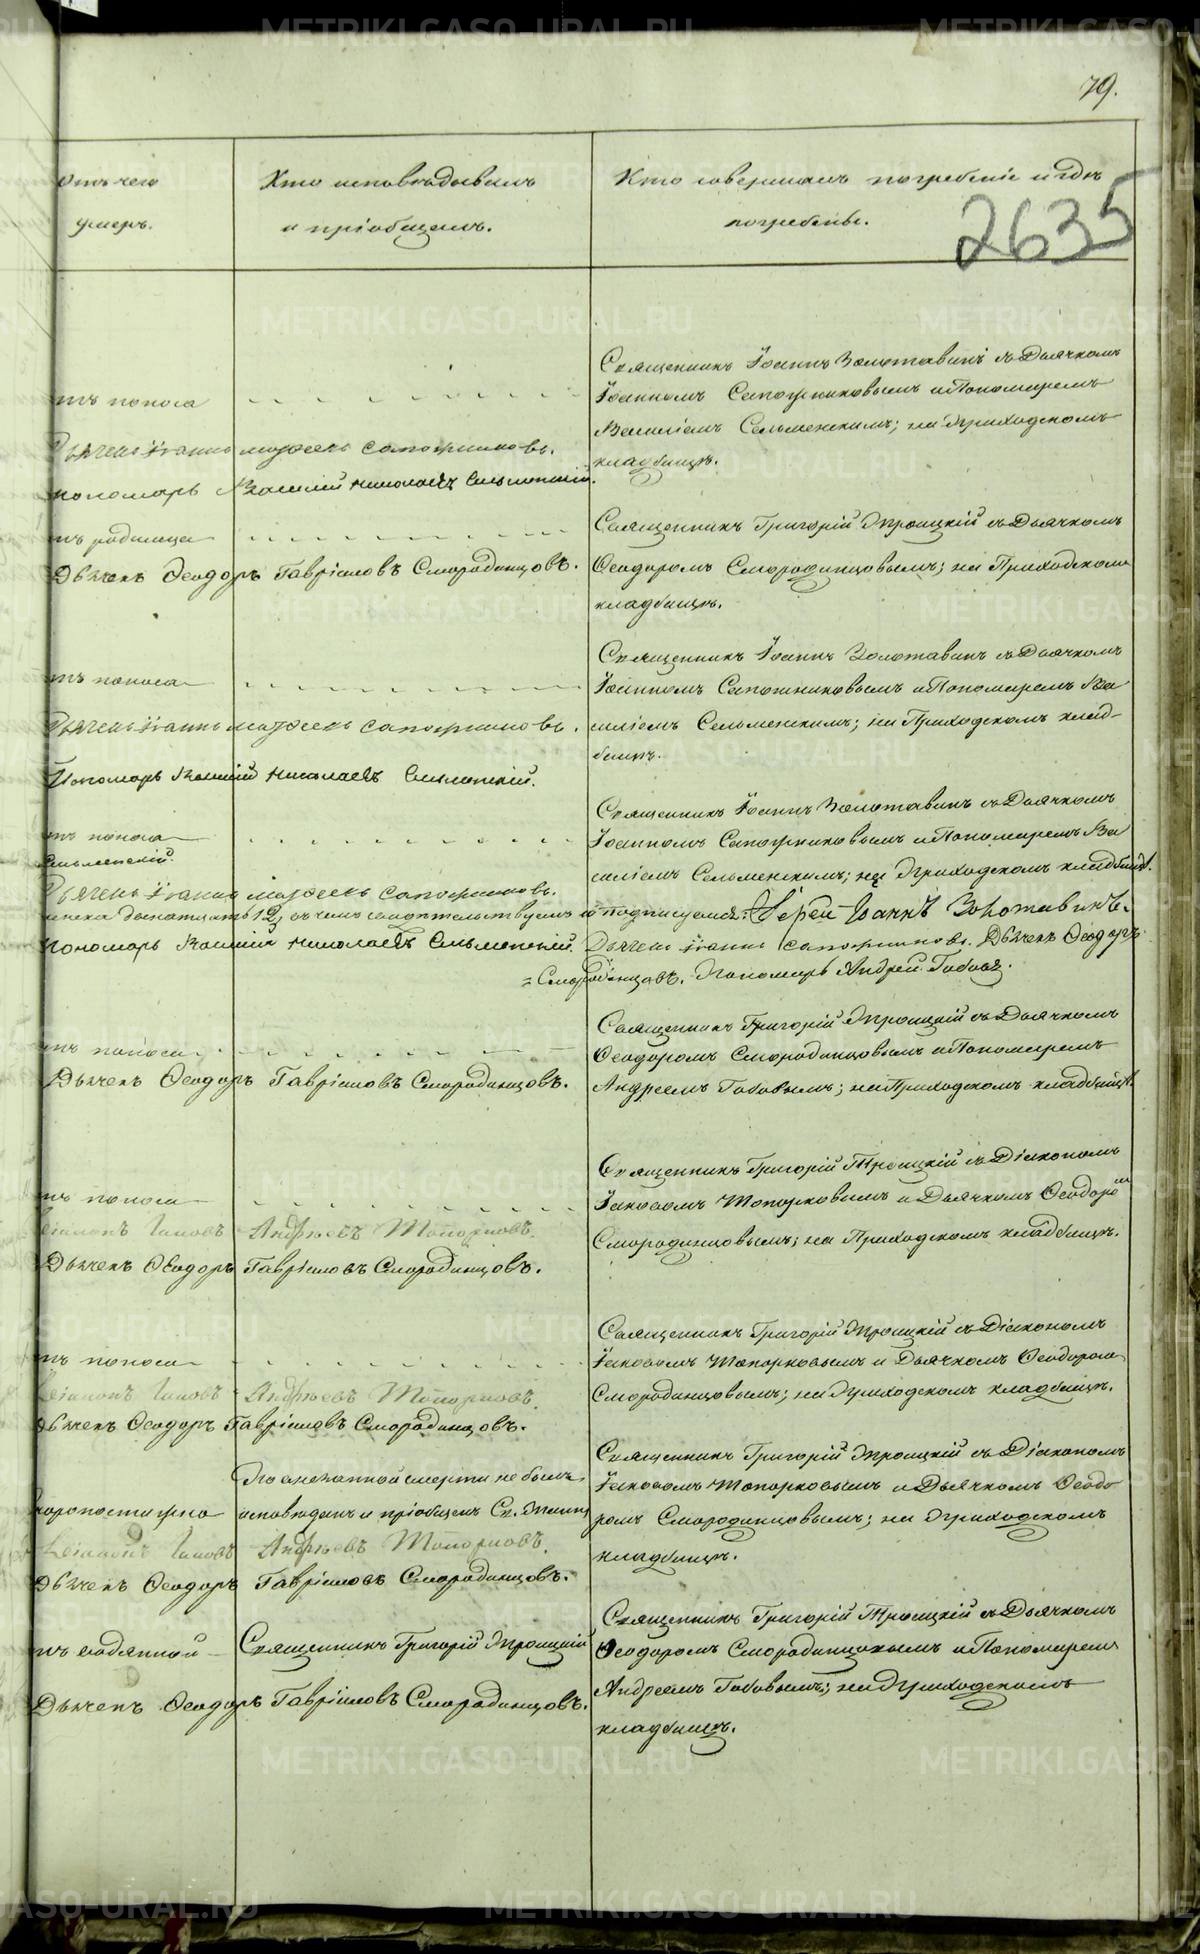 79.
Отъ чего
умеръ.
Кто исповѣдывалъ
и пріобщалъ.
Кто совершалъ погребеніе и гдѣ
погребены.
2635
Священникъ Іоаннъ Золотавинъ съ Дьячкомъ
отъ поноса
Іоанномъ Сапожниковымъ и Пономаремъ
Василіемъ Сельменскимъ; на Приходскомъ
кладбищѣ.
Дьячекъ Іоаннъ Матѳеевъ Сапожниковъ.
Пономарь Василій Николаевъ Сельменскій.
Священникъ Григорій Троицкій съ Дьячкомъ
отъ родимца
Ѳеодоромъ Смородинцовымъ; на Приходскомъ
кладбищѣ.
Дьячекъ Ѳеодоръ Гавріиловъ Смородинцовъ.
Священникъ Іоаннъ Золотавинъ съ Дьячкомъ
отъ поноса
Іоанномъ Сапожниковымъ и Пономаремъ Ва
силіемъ Сельменскимъ; на Приходскомъ клад-
бищѣ.
Дьячекъ Іоаннъ Матѳеевъ Сапожниковъ.
Пономарь Василій Николаевъ Сельменскій.
Священникъ Іоаннъ Золотавинъ съ Дьячкомъ
отъ поноса
Іоанномъ Сапожниковымъ и Пономаремъ Ва
силіемъ Сельменскимъ; на Приходскомъ кладбищѣ.
Сельменскій.
Дьячекъ Іоаннъ Матѳеевъ Сапожниковъ.
12, въ чемъ свидѣтельствуемъ и подписуемся: Іерей Іоаннъ Золотавинъ.
Пономарь Василій Николаевъ Сельменскій. Дьячекъ Іоаннъ Сапожниковъ. Дьячекъ Ѳеодоръ
= Смородинцовъ. Пономарь Андрей Бабовъ.
Священникъ Григорій Троицкій съ Дьячкомъ
отъ поноса
Ѳеодоромъ Смородинцовымъ и Пономаремъ
Андреемъ Бабовымъ; на Приходскомъ кладбищѣ.
Дьячекъ Ѳеодоръ Гавріиловъ Смородинцовъ.
Священникъ Григорій Троицкій съ Діакономъ
отъ поноса
Іаковомъ Топорковымъ и Дьячкомъ Ѳеодоромъ
Смородинцовымъ; на Приходскомъ кладбищѣ.
Діаконъ Іаковъ Андреевъ Топорковъ.
Дьячекъ Ѳеодоръ Гавріиловъ Смородинцовъ.
Священникъ Григорій Троицкій съ Діакономъ
отъ поноса
Іаковомъ Топорковымъ и Дьячкомъ Ѳеодоромъ
Смородинцовымъ; на Приходскомъ кладбищѣ.
Діаконъ Іаковъ Андреевъ Топорковъ.
Дьячекъ Ѳеодоръ Гавріиловъ Смородинцовъ.
Священникъ Григорій Троицкій съ Діакономъ
По внезапной смерти не былъ
Іаковомъ Топорковымъ и Дьячкомъ Ѳеодо
скоропостижно
исповѣданъ и пріобщенъ Св. Таинъ
ромъ Смородинцовымъ; на Приходскомъ
кладбищѣ.
Діаконъ Іаковъ Андреевъ Топорковъ.
Дьячекъ Ѳеодоръ Гавріиловъ Смородинцовъ.
Священникъ Григорій Троицкій съ Дьячкомъ
отъ водяной
Священникъ Григорій Троицкій
Ѳеодоромъ Смородинцовымъ и Пономаремъ
Андреемъ Бабовымъ; на Приходскомъ
кладбищѣ.
Дьячекъ Ѳеодоръ Гавріиловъ Смородинцовъ.
METRIKI.GASO-URAL.RU